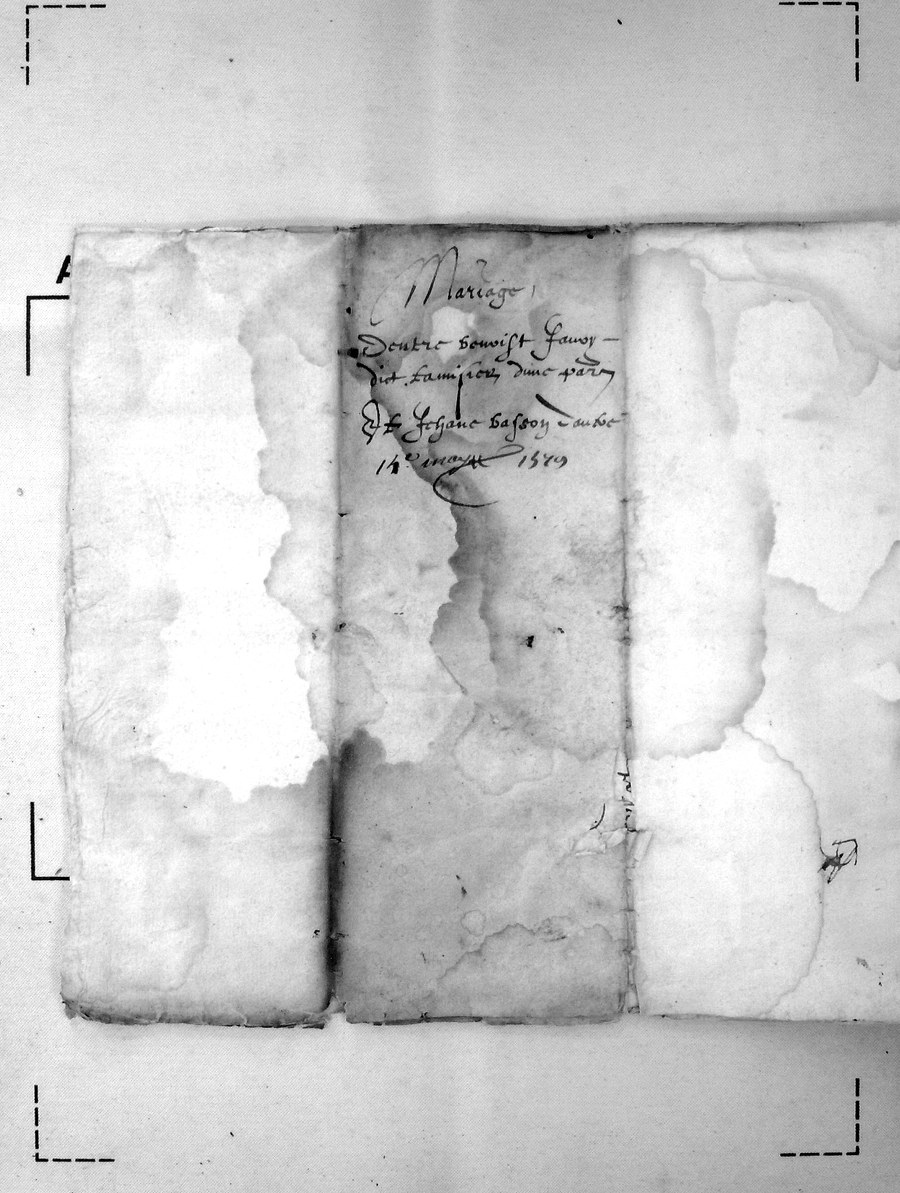 Mariage
Dentre benoist favoy
dict tamisier dune part
Et Jehane basson daultre
14e may 1579